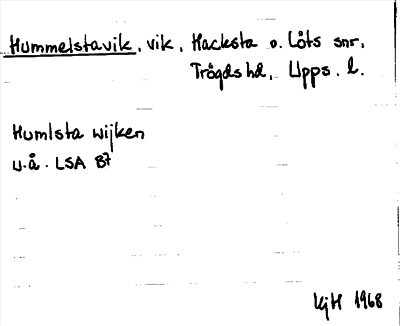 Hummelstavik, vik, Hacksta o. Löts snr,
Trögds hd, Upps. l.
Humlsta wijken
u.å. LSA B7
KjH 1968